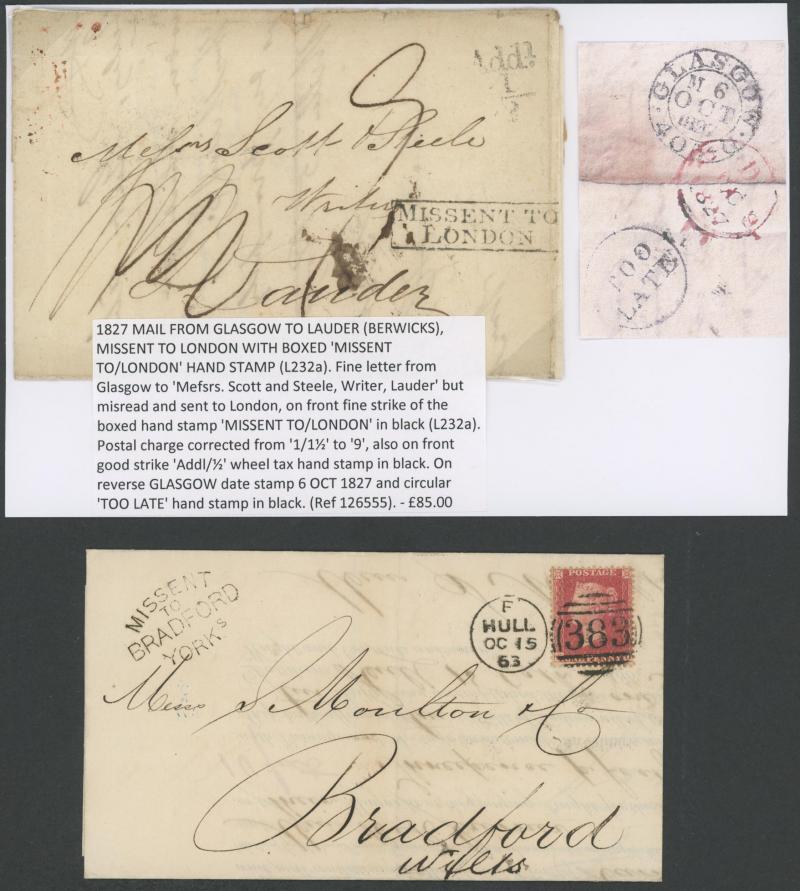 Addl
½
9
Messrs Scott & Steele
Writer
MISSENT TO
LONDON
Lauder
GLASGOW
M 6
OCT
1827
TOO
LATE
1827 MAIL FROM GLASGOW TO LAUDER (BERWICKS),
MISSENT TO LONDON WITH BOXED 'MISSENT
TO/LONDON' HAND STAMP (L232a). Fine letter from
Glasgow to 'Mefsrs. Scott and Steele, Writer, Lauder' but
misread and sent to London, on front fine strike of the
boxed hand stamp 'MISSENT TO/LONDON' in black (L232a).
Postal charge corrected from '1/1½' to '9', also on front
good strike 'Addl/½' wheel tax hand stamp in black. On
reverse GLASGOW date stamp 6 OCT 1827 and circular
'TOO LATE' hand stamp in black. (Ref 126555). - £85.00
MISSENT
TO
BRADFORD
YORKS
F
HULL
OC 15
63
POSTAGE
383
ONE PENNY
Messrs S Moulton & Co
Bradford
Wilts